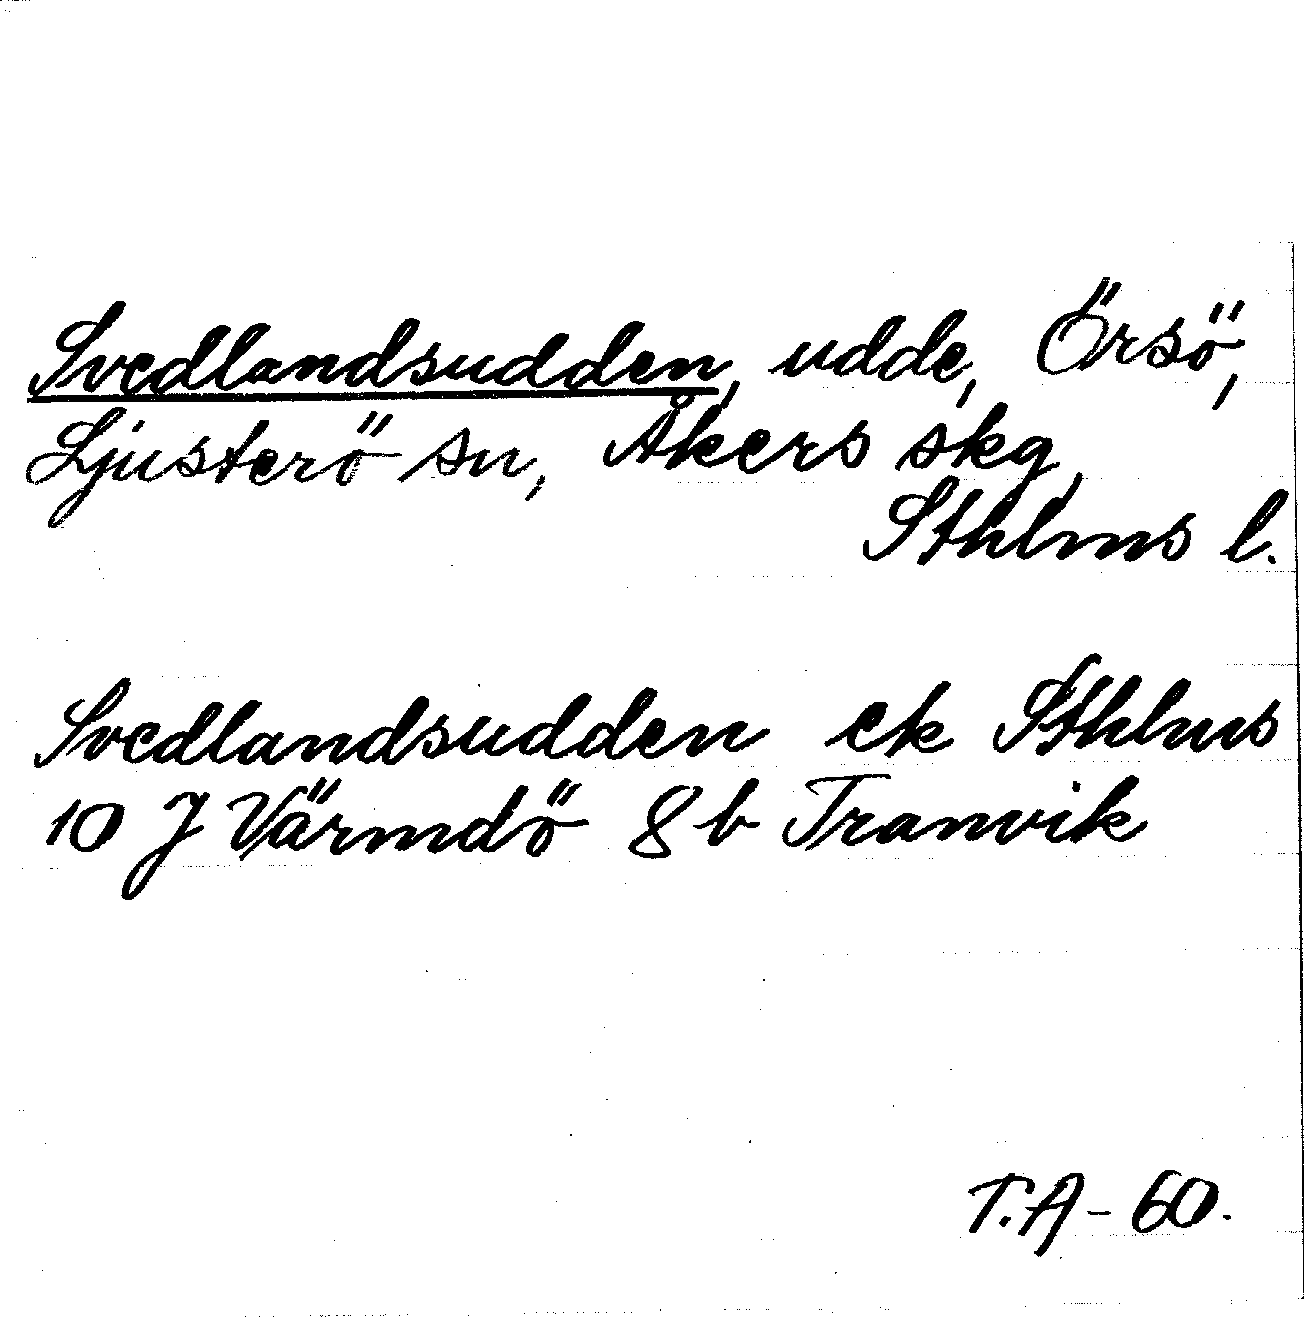 Svedlandsudden, udde, Örsö,
Ljusterö sn, Åkers skg,
Sthlms l.
Svedlandsudden ek Sthlms
10 J Värmdö 8 b Tranvik
T.A - 60.